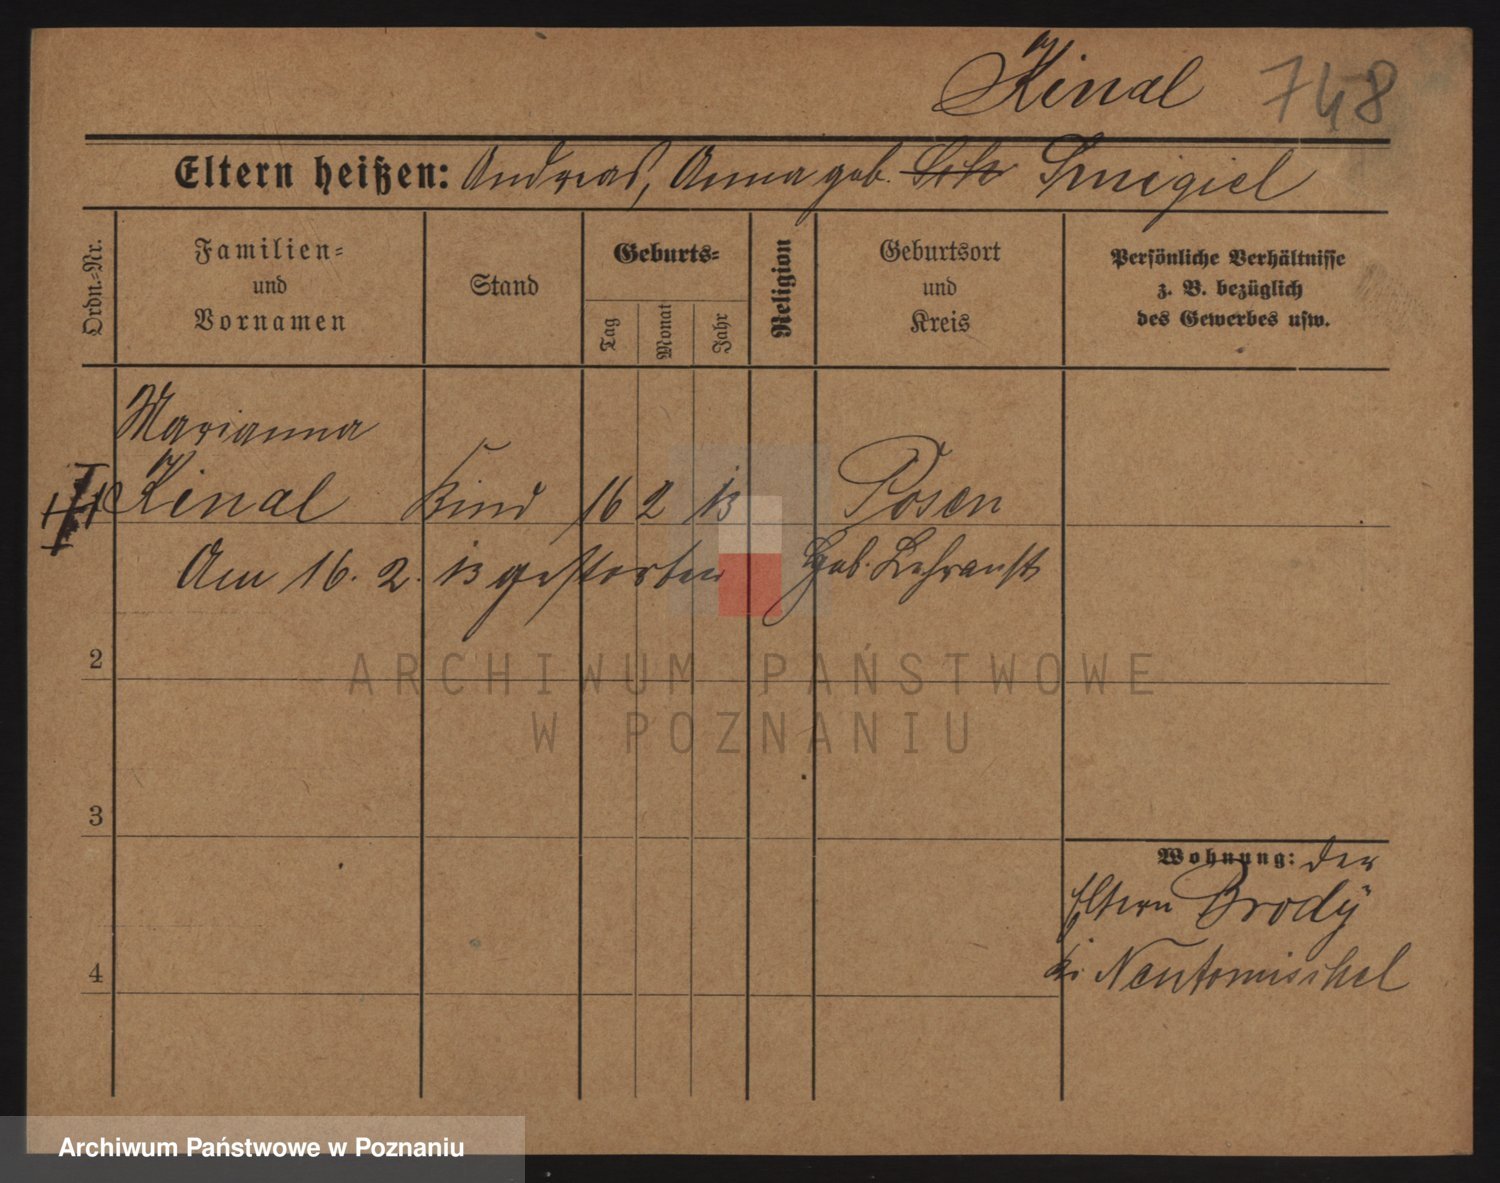 Kinal 748
Eltern heißen: Andreas, Anna geb. Smigiel
Ordn.=Nr.
Familien=
und
Vornamen
Stand
Geburts=
Tag
Monat
Jahr
Religion
Geburtsort
und
Kreis
Persönliche Verhältnisse
z. B. bezüglich
des Gewerbes usw.
Marianna
Kinal Kind 16 2 13 Posen
Am 16. 2. 13 gestorben Heb. Lehranst
2
3
4
Wohnung: der
Eltern Brody
Kr. Neutomischel
ARCHIWUM PAŃSTWOWE
W POZNANIU
Archiwum Państwowe w Poznaniu